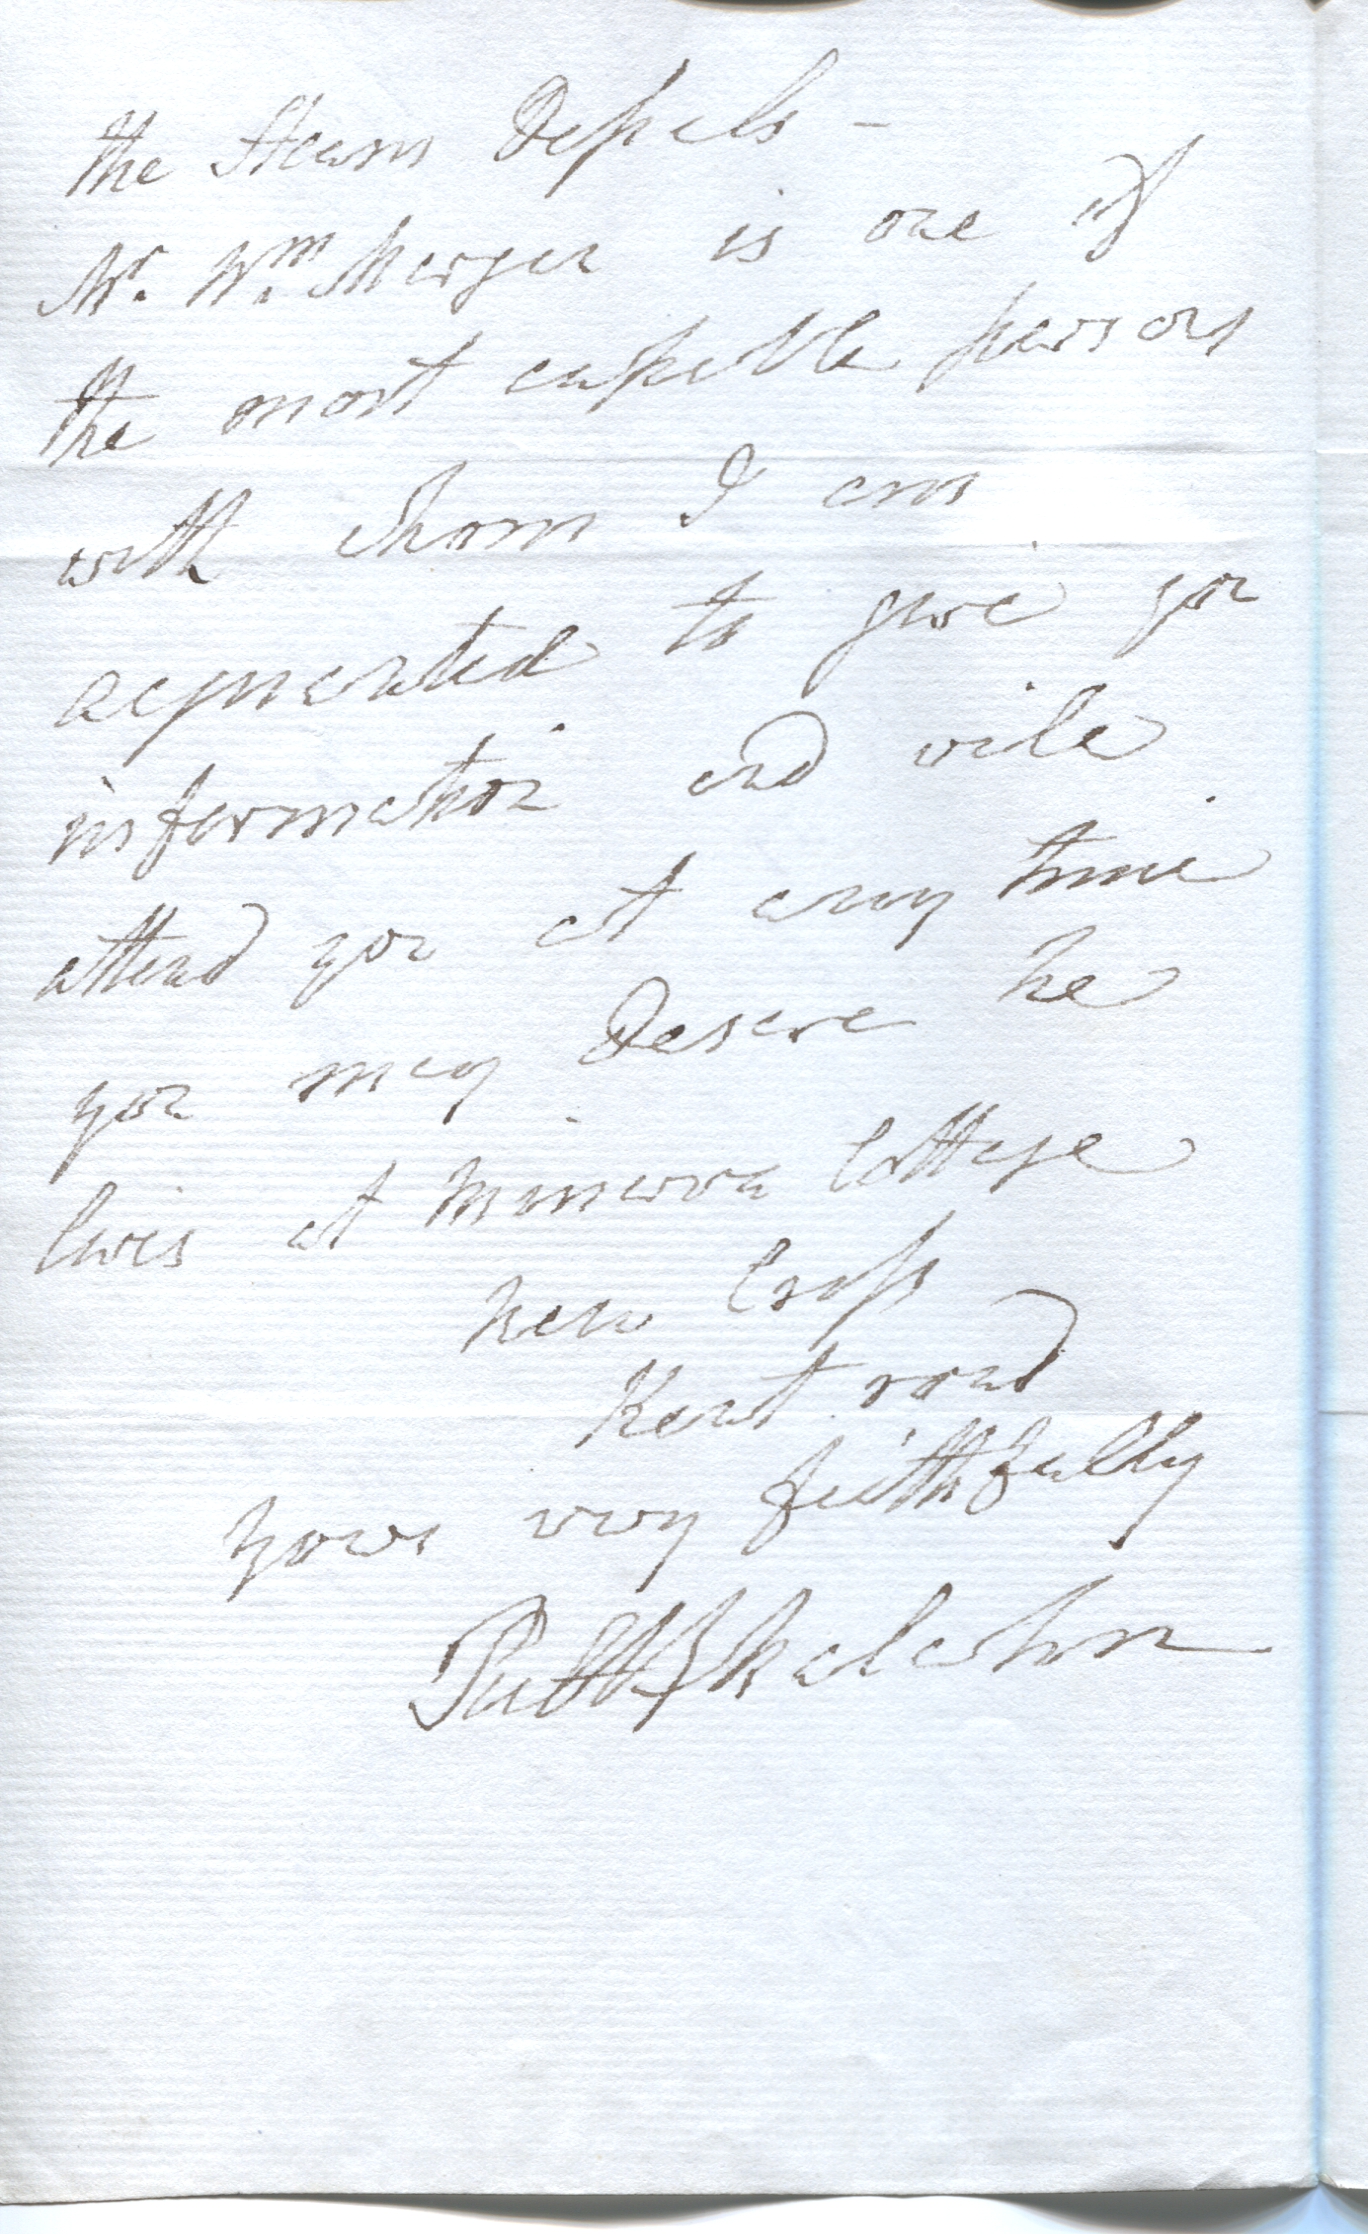 the Steam Vessels –
Mr. Wm. Morgan is one of
the most capable persons
with whom I am
acquainted to give you
information and will
attend you at any time
you may desire he
lives at Minerva Cottage
New Cross
Kent road
yours very faithfully
Malcolm